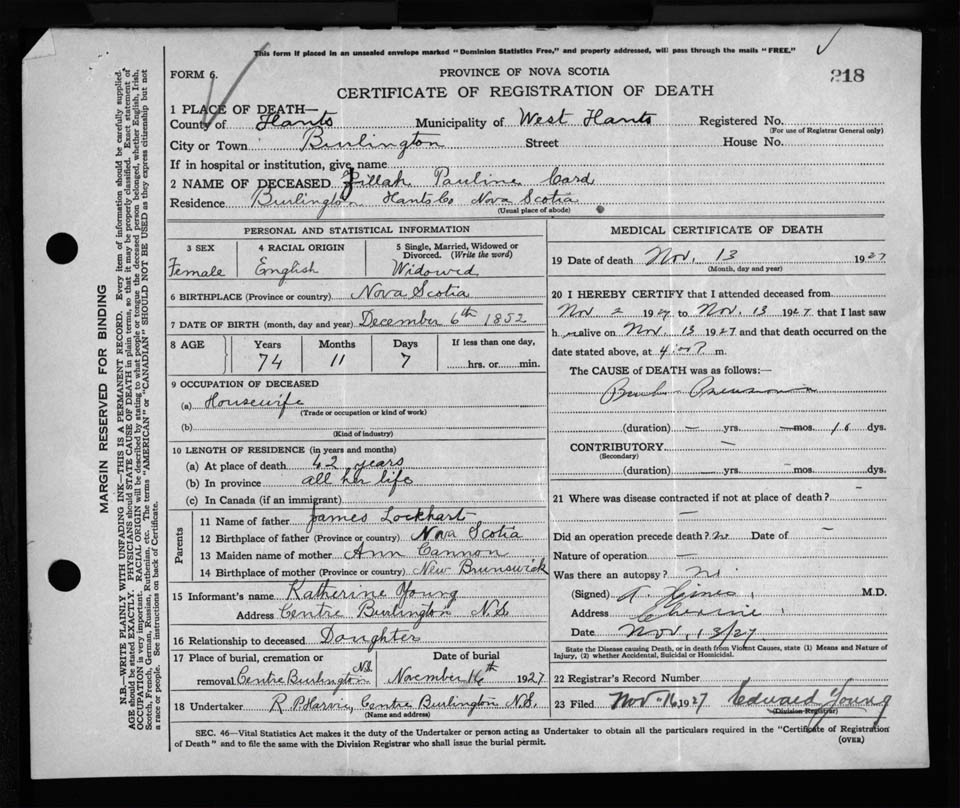 This form if placed in an unsealed envelope marked "Dominion Statistics Free," and properly addressed, will pass through the mails "FREE."
218
FORM 6.
PROVINCE OF NOVA SCOTIA
CERTIFICATE OF REGISTRATION OF DEATH
1 PLACE OF DEATH—
County of Hants Municipality of West Hants Registered No.
(For use of Registrar General only)
City or Town Burlington Street House No.
If in hospital or institution, give name
2 NAME OF DECEASED Zillah Pauline Card
Residence Burlington Hants Co Nova Scotia
(Usual place of abode)
PERSONAL AND STATISTICAL INFORMATION
3 SEX 4 RACIAL ORIGIN 5 Single, Married, Widowed or Divorced. (Write the word)
Female English Widowed
6 BIRTHPLACE (Province or country) Nova Scotia
7 DATE OF BIRTH (month, day and year) December 6th 1852
8 AGE Years Months Days If less than one day,
74 11 7 hrs. or min.
9 OCCUPATION OF DECEASED
(a) Housewife
(Trade or occupation or kind of work)
(b)
(Kind of industry)
10 LENGTH OF RESIDENCE (in years and months)
(a) At place of death 42 years
(b) In province all her life
(c) In Canada (if an immigrant)
Parents
11 Name of father James Lockhart
12 Birthplace of father (Province or country) Nova Scotia
13 Maiden name of mother Ann Cannon
14 Birthplace of mother (Province or country) New Brunswick
15 Informant's name Katherine Young
Address Centre Burlington N.S
16 Relationship to deceased Daughter
17 Place of burial, cremation or Date of burial
removal Centre Burlington N.S. November 16th 1927
18 Undertaker R P Harvie, Centre Burlington N.S.
(Name and address)
MEDICAL CERTIFICATE OF DEATH
19 Date of death Nov. 13 1927
(Month, day and year)
20 I HEREBY CERTIFY that I attended deceased from
Nov 2 1927 to Nov. 13 1927 that I last saw
h alive on Nov. 13 1927 and that death occurred on
date stated above, at 4 m.
The CAUSE of DEATH was as follows:—
(duration) — yrs. — mos. dys.
CONTRIBUTORY —
(Secondary)
(duration) — yrs. mos. dys.
21 Where was disease contracted if not at place of death? —
Did an operation precede death? no Date of —
Nature of operation —
Was there an autopsy?
(Signed) M.D.
Address
Date Nov. 13/27.
State the Disease causing Death, or in death from Violent Causes, state (1) Means and Nature of
Injury, (2) whether Accidental, Suicidal or Homicidal.
22 Registrar's Record Number
23 Filed Nov 16 1927 Edward Young
(Division Registrar)
SEC. 46—Vital Statistics Act makes it the duty of the Undertaker or person acting as Undertaker to obtain all the particulars required in the "Certificate of Registration
of Death" and to file the same with the Division Registrar who shall issue the burial permit.
(OVER)
MARGIN RESERVED FOR BINDING
N.B.—WRITE PLAINLY WITH UNFADING INK—THIS IS A PERMANENT RECORD. Every item of information should be carefully supplied.
AGE should be stated EXACTLY. PHYSICIANS should STATE CAUSE OF DEATH in plain terms, so that it may be properly classified. Exact statement of
OCCUPATION is very important. RACIAL ORIGIN will be described by stating to what people or tongue the deceased person belonged, whether English, Irish,
Scotch, French, German, Russian, Ruthenian, etc. The terms "AMERICAN" or "CANADIAN" SHOULD NOT BE USED as they express citizenship but not
a race or people. See instructions on back of Certificate.